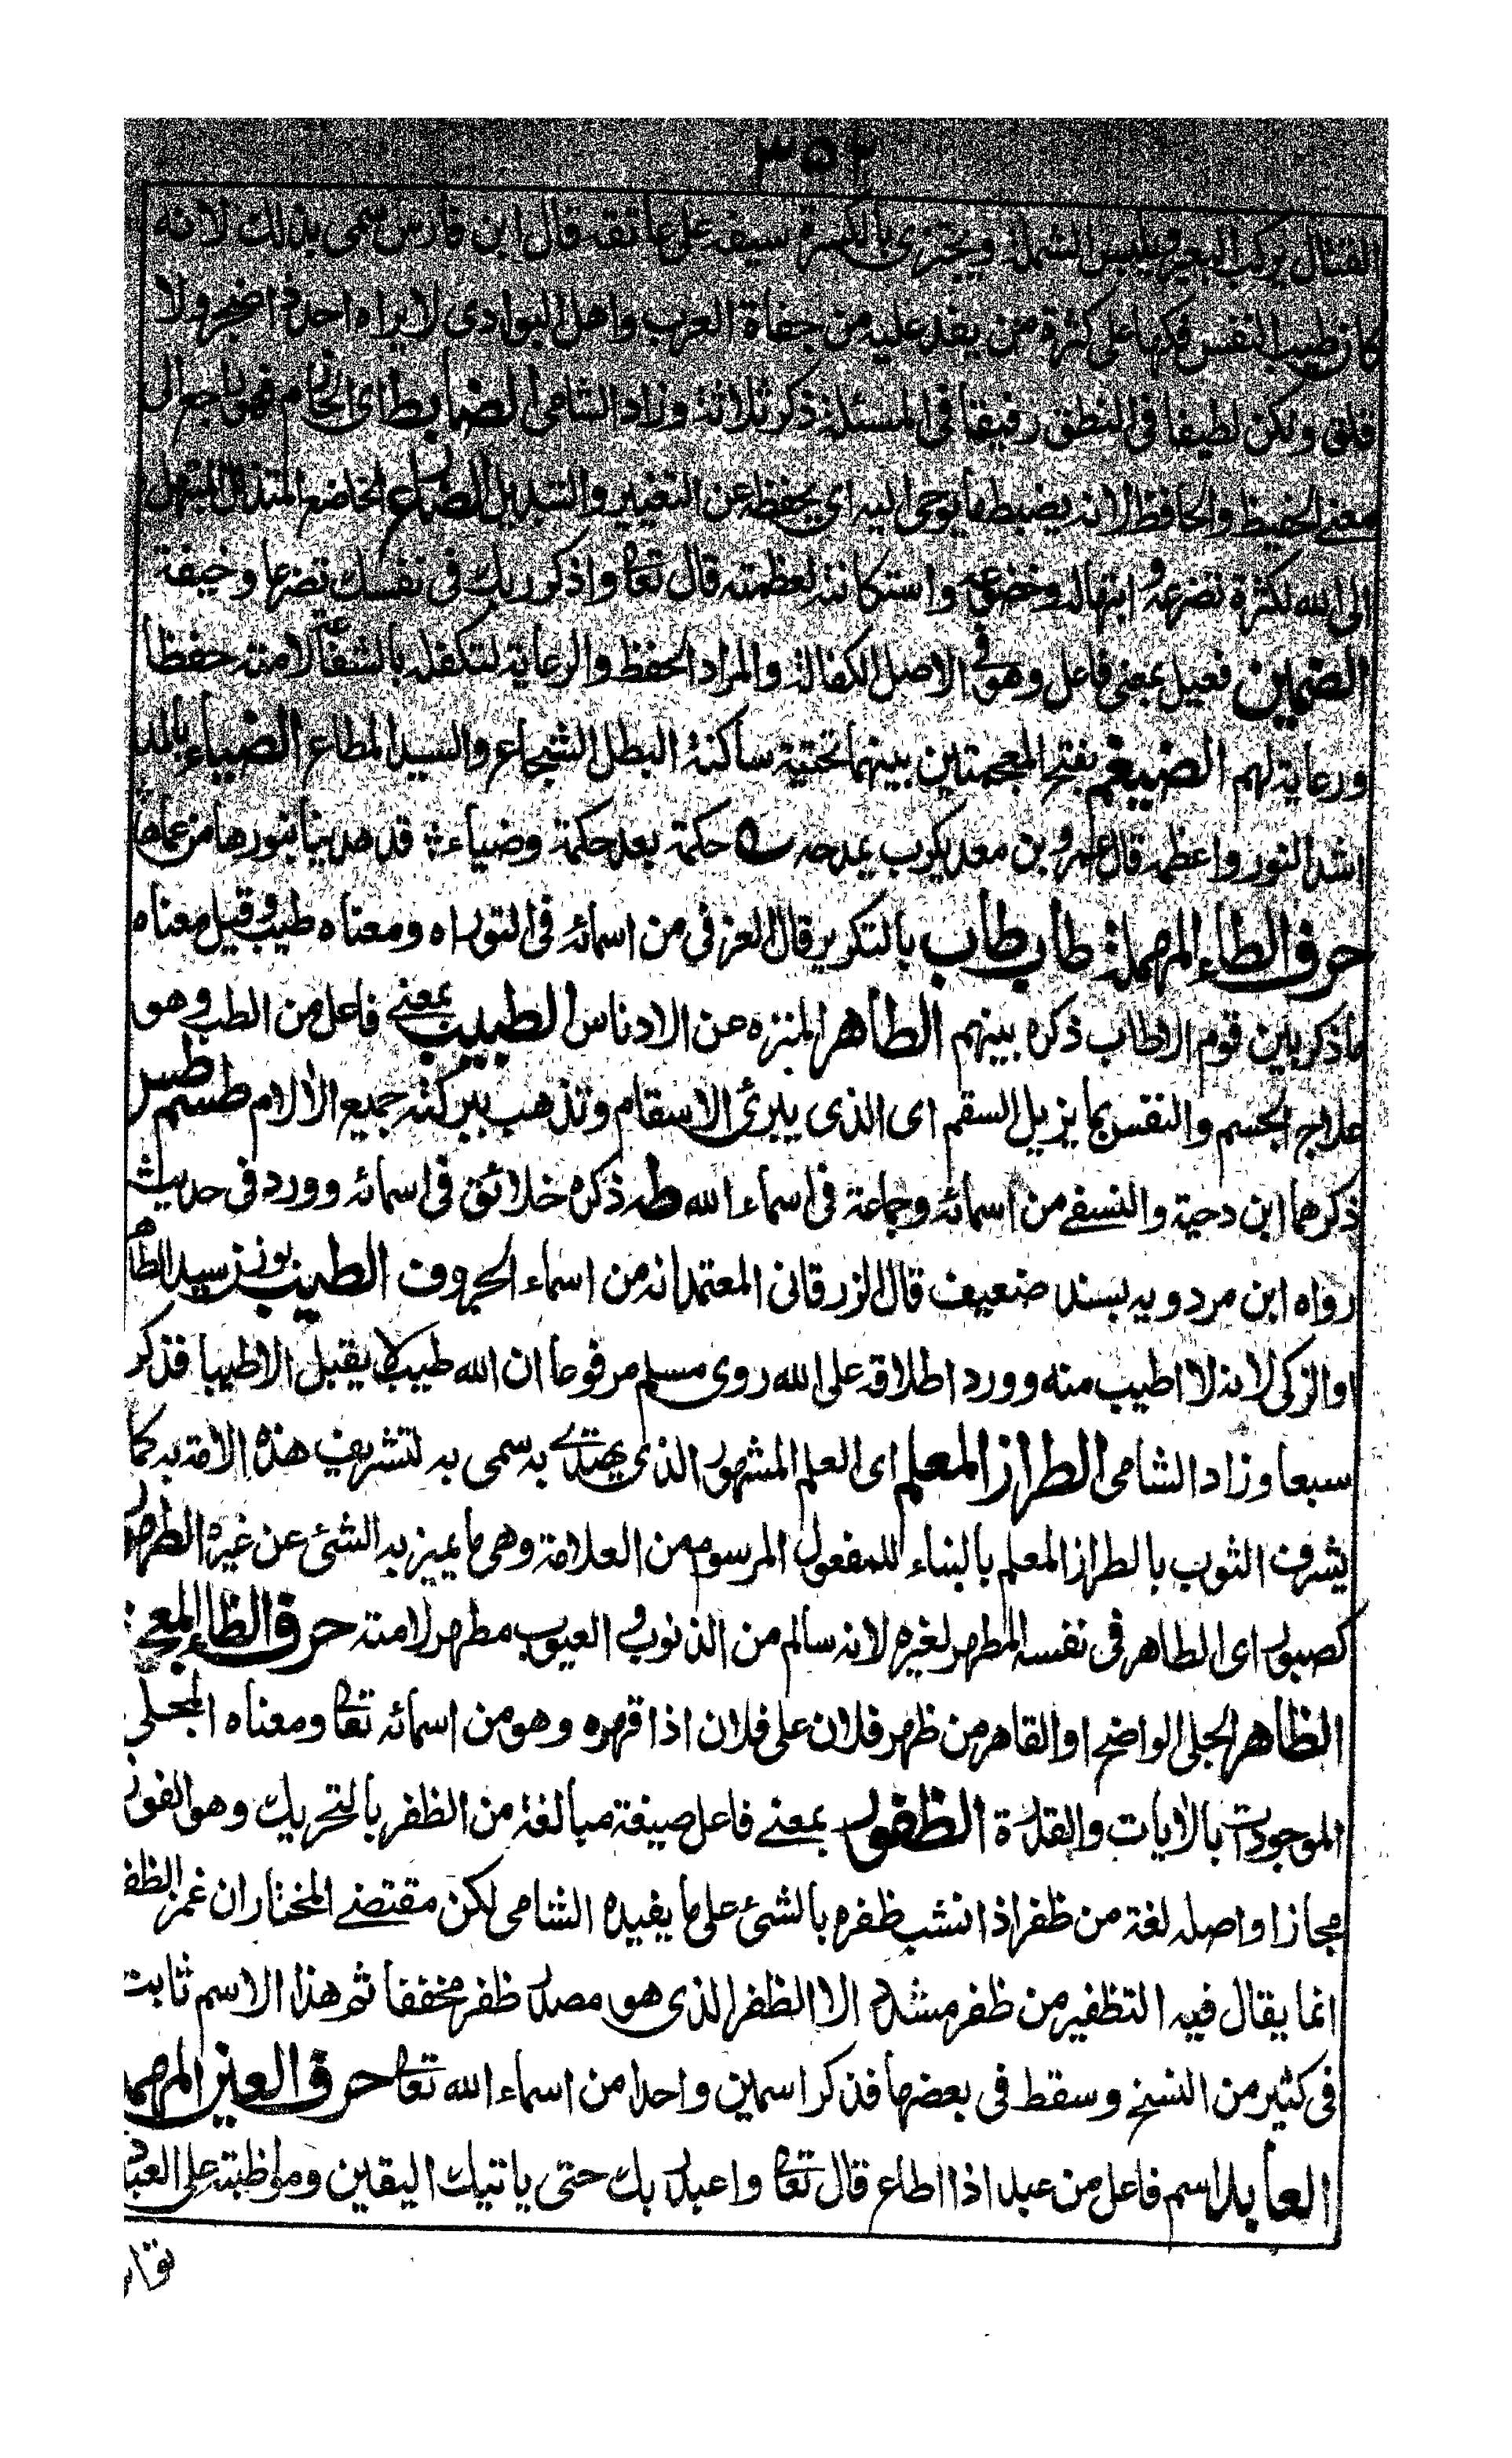 ٣٥٢
القتال يركب البعير ويلبس الشملة ويجتزى بالكسرة سيفه على عاتقه قال ابن فارس سمى بذلك لانه
كان طيب النفس فكها على كثرة من يفد عليه من جفاة العرب واهل البوادى لا يراه احد ذا ضجر ولا
قلق ولكن لطيفا فى النطق رفيقا فى المسئلة ذكر ثلاثة وزاد الشامى الضابط اى الحازم فهو راجع الى
معنے الحفيظ والحافظ لانه يضبط ما يوحى اليه اى يحفظه عن التغيير والتبديل الضارع الخاضع المتذلل المبتهل
الى الله لكثرة تضرعه و ابتهاله وخضوعه واستكانته لعظمته قال تعالى واذكر ربك فى نفسك تضرعا وخيفة
الضمين فعيل بمعنى فاعل وهو فى الاصل الكفالة والمراد الحفظ والرعاية لتكفله بالشفاعة لامته حفظا
ورعاية لهم الضيغم بفتح المعجمتين بينهما تحتية ساكنة البطل الشجاع والسيد المطاع الضياء بالمد
اشد النور واعظمه قال عمرو بن معد يكرب يمدحه حكمة بعد حكمة وضياء قد هدينا بنورها من عماها
حرف الطاء المهملة طاب طاب بالتكرير قال العزفى من اسمائه فى التوراه ومعناه طيب وقيل معناه
ما ذكر بين قوم الا طاب ذكره بينهم الطاهر المنزه عن الادناس الطبيب بمعنے فاعل من الطب وهو
علاج الجسم والنفس بما يزيل السقم اى الذى يبرئ الاسقام وتذهب ببركته جميع الالام طسم طس
ذكرهما ابن دحية والنسفے من اسمائه وجماعة فى اسماء الله طه ذكره خلائق فى اسمائه وورد فى حديث
رواه ابن مردويه بسند ضعيف قال الزرقانى المعتمد انه من اسماء الحروف الطيب بوزن سيد الطاهر
او الزكى لانه لا اطيب منه وورد اطلاقه على الله روى مسلم مرفوعا ان الله طيب لا يقبل الا طيبا فذكر
سبعا وزاد الشامى الطراز المعلم اى العلم المشهور الذى يهتدے به سمى به لتشريف هذه الامة به كما
يشرف الثوب بالطراز المعلم بالبناء للمفعول المرسوم من العلامة وهى ما يميز به الشئ عن غيره الطهور
كصبور اى الطاهر فى نفسه المطهر لغيره لانه سالم من الذنوب و العيوب مطهر لامته حرف الظاء المعجمة
الظاهر الجلى الواضح او القاهر من ظهر فلان على فلان اذا قهره وهو من اسمائه تعالى ومعناه المجلى
الموجودات بالايات والقدرة الظفور بمعنے فاعل صيغة مبالغة من الظفر بالتحريك وهو الفوز
مجازا واصله لغة من ظفر اذا نشب ظفره بالشئ على ما يفيده الشامى لكن مقتضے المختار ان غمز الظفر
انما يقال فيه التظفير من ظفر مشدد الا الظفر الذى هو مصدر ظفر مخففا ثم هذا الاسم ثابت
فى كثير من النسخ وسقط فى بعضها فذكر اسمين واحدا من اسماء الله تعالى حرف العين المهملة
العابد اسم فاعل من عبد اذا اطاع قال تعالى واعبد ربك حتى ياتيك اليقين ومواظبته على العبادة